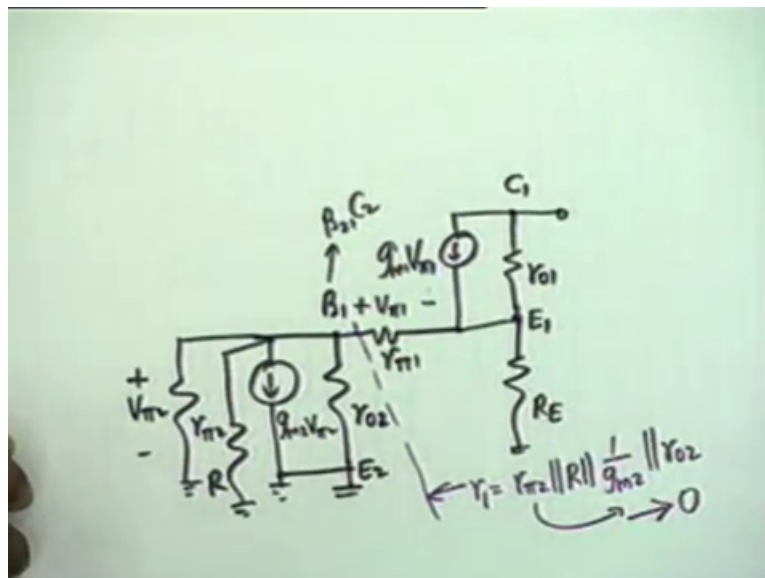 C₁
B₂, C₂
gₘ₁Vπ₁
r₀₁
B₁ + Vπ₁ -
E₁
rπ₁
+
Vπ₂
-
rπ₂
R
gₘ₂Vπ₂
r₀₂
R_E
E₂
r₁ = rπ₂ || R || 1/gₘ₂ || r₀₂
→ 0